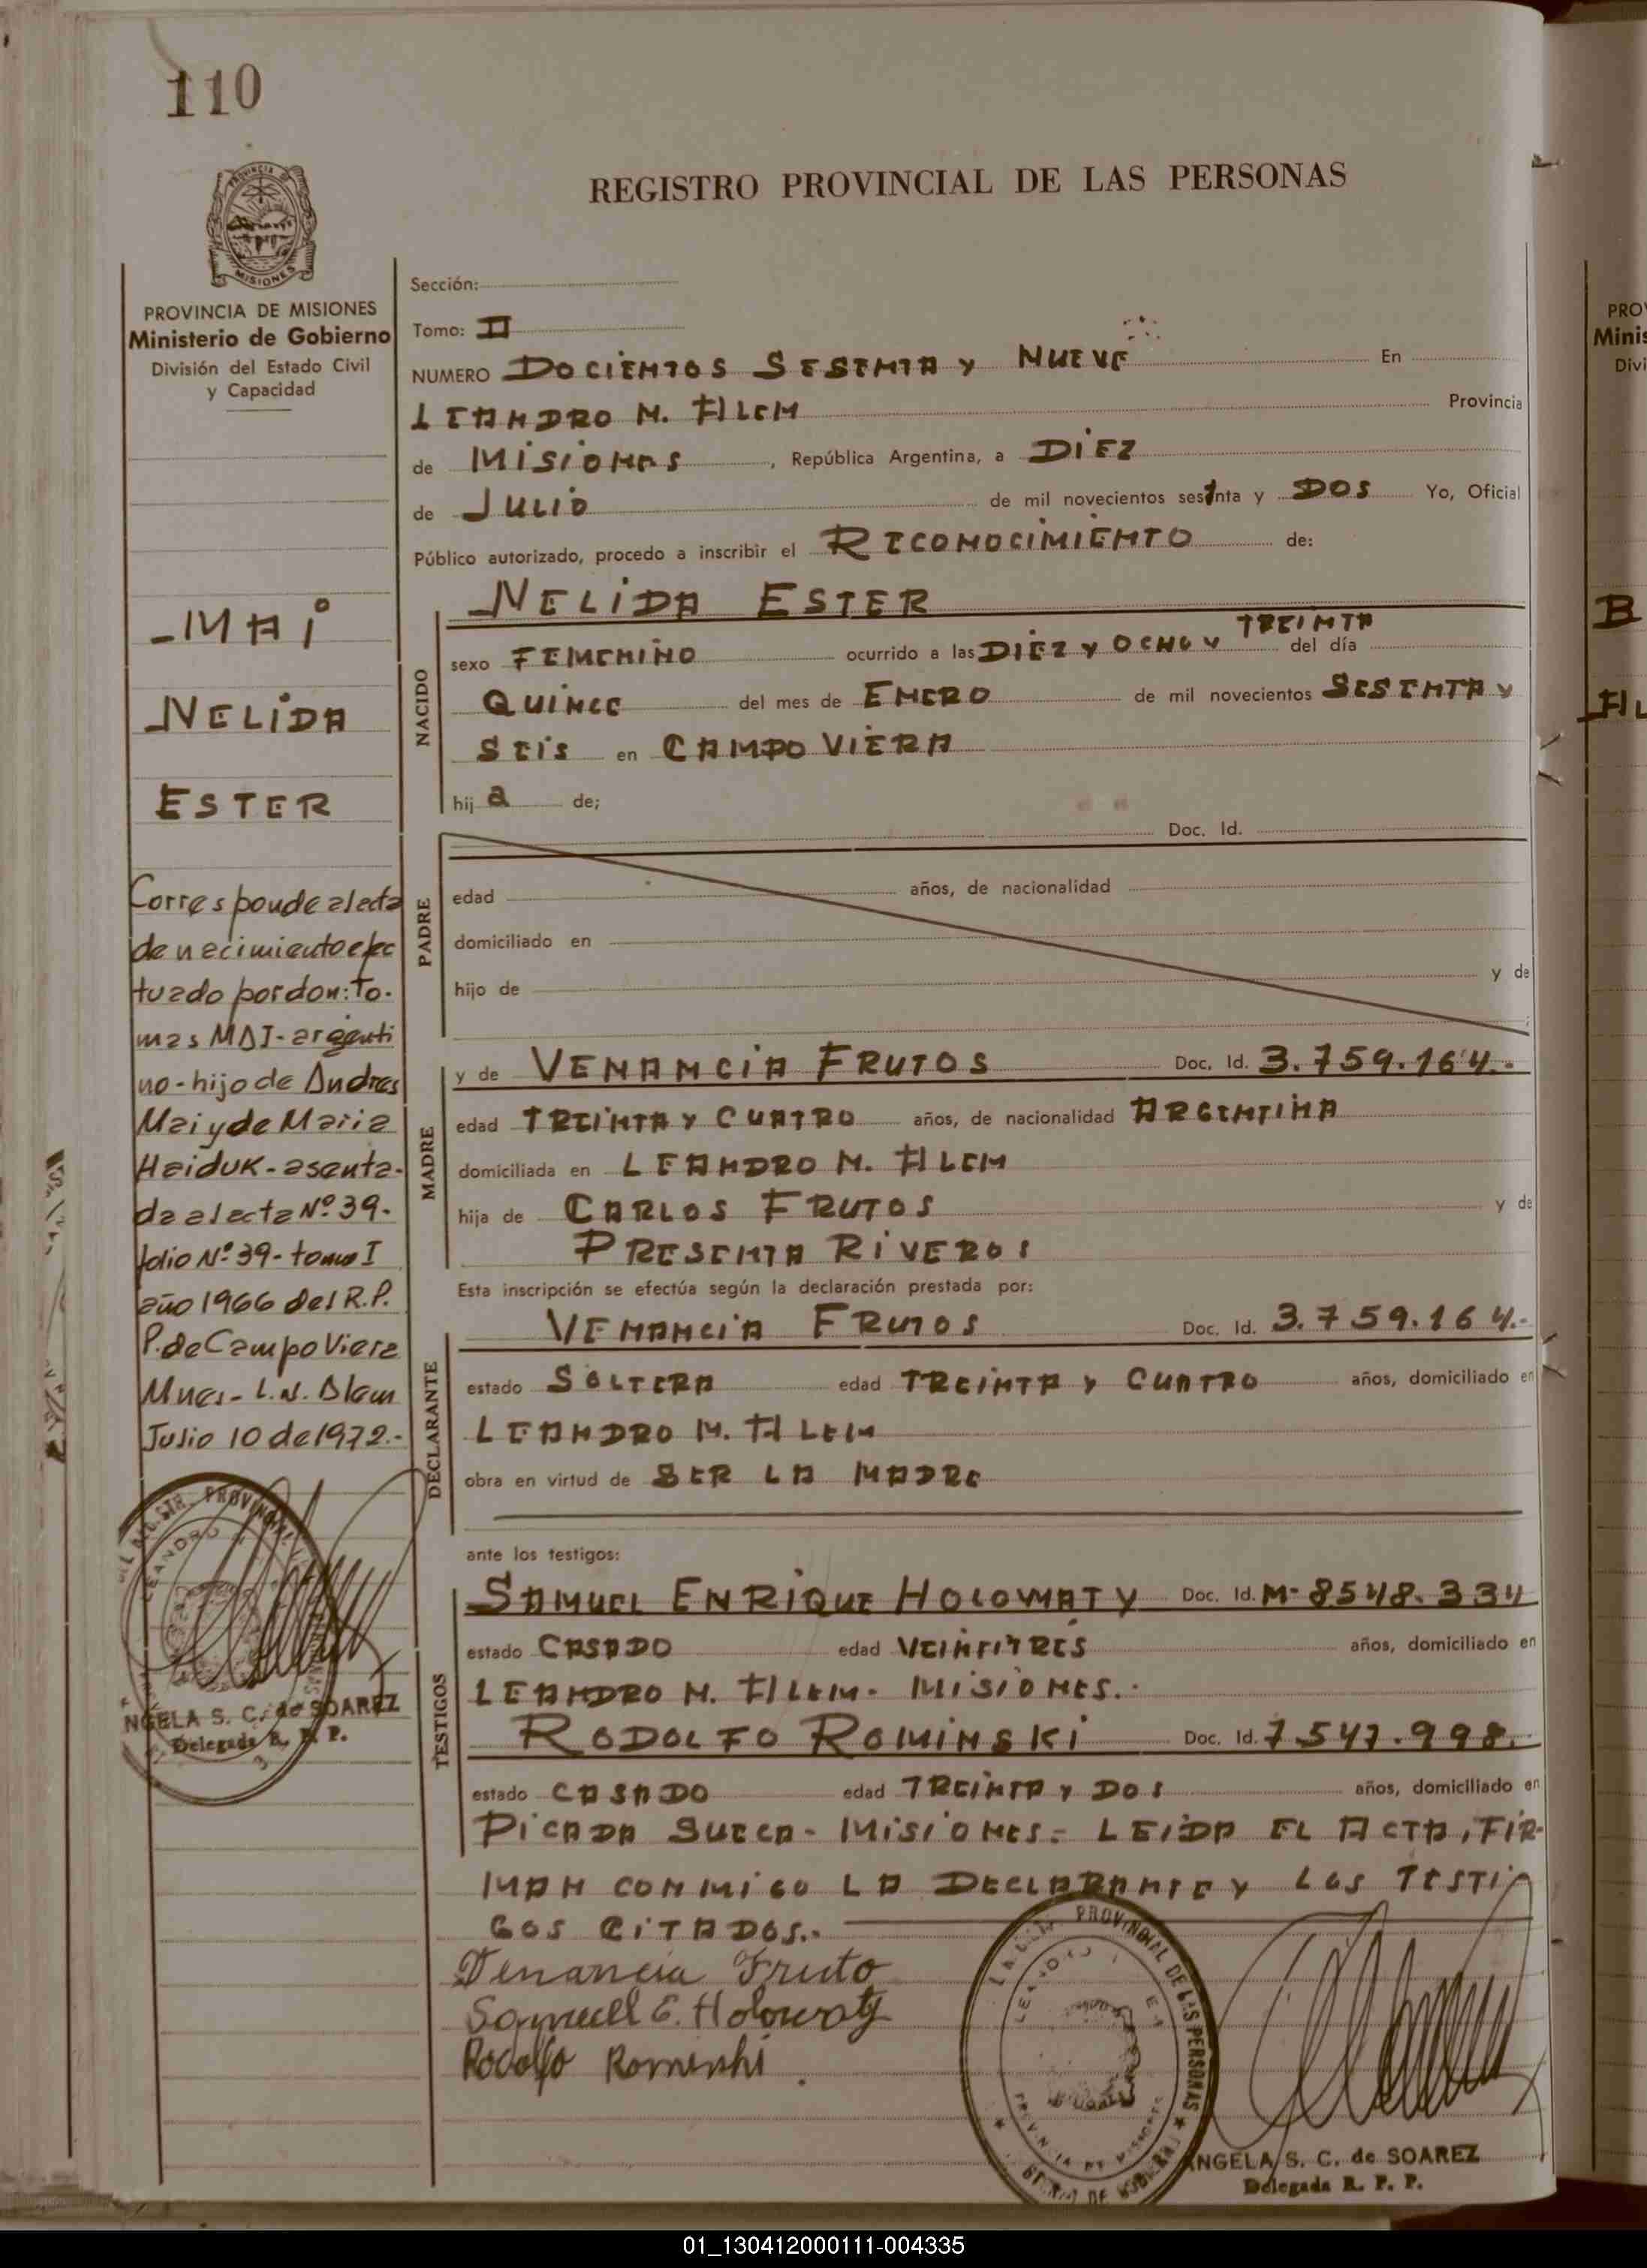 110
REGISTRO PROVINCIAL DE LAS PERSONAS
PROVINCIA DE
MISIONES
PROVINCIA DE MISIONES
Ministerio de Gobierno
División del Estado Civil
y Capacidad
MAI
NELIDA
ESTER
Corresponde al acta
de nacimiento efec
tuado por don: To-
mas MAI - argenti
no - hijo de Andres
Mai y de Maria
Haiduk - asenta-
da al acta Nº 39-
folio Nº 39 - tomo I
año 1966 del R.P.
P. de Campo Viera
Mnes - L.N. Alem
Julio 10 de 1972.-
NGELA S. C. de SOAREZ
Delegada R. P. P.
Sección:
Tomo: II
NUMERO DOCIENTOS SESENTA Y NUEVE En
LEANDRO N. ALEM Provincia
de MISIONES , República Argentina, a DIEZ
de JULIO de mil novecientos setenta y DOS Yo, Oficial
Público autorizado, procedo a inscribir el RECONOCIMIENTO de:
NACIDO
NELIDA ESTER
sexo FEMENINO ocurrido a las DIEZ Y OCHO Y TREINTA del día
QUINCE del mes de ENERO de mil novecientos SESENTA Y
SEIS en CAMPO VIERA
hij a de;
PADRE
Doc. Id.
edad años, de nacionalidad
domiciliado en
hijo de y de
MADRE
y de VENANCIA FRUTOS Doc. Id. 3.759.164.-
edad TREINTA Y CUATRO años, de nacionalidad ARGENTINA
domiciliada en LEANDRO N. ALEM
hija de CARLOS FRUTOS y de
PRESENTA RIVEROS
Esta inscripción se efectúa según la declaración prestada por:
DECLARANTE
VENANCIA FRUTOS Doc. Id. 3.759.164.-
estado SOLTERA edad TREINTA Y CUATRO años, domiciliado en
LEANDRO N. ALEM
obra en virtud de SER LA MADRE
ante los testigos:
TESTIGOS
SAMUEL ENRIQUE HOLOWATY Doc. Id. M- 8548.334
estado CASADO edad VEINTITRES años, domiciliado en
LEANDRO N. ALEM- MISIONES.-
RODOLFO ROMINSKI Doc. Id. 7547.998.
estado CASADO edad TREINTA Y DOS años, domiciliado en
PICADA SUECA- MISIONES.- LEIDA EL ACTA, FIR-
MAN CONMIGO LA DECLARANTE Y LOS TESTI
GOS CITADOS.-
Venancia Fruto
Samuel E. Holowaty
Rodolfo Rominski
PROVINCIAL DE LAS PERSONAS
ANGELA S. C. de SOAREZ
Delegada R. P. P.
PRO
Minis
Divi
B
AL
01_130412000111-004335